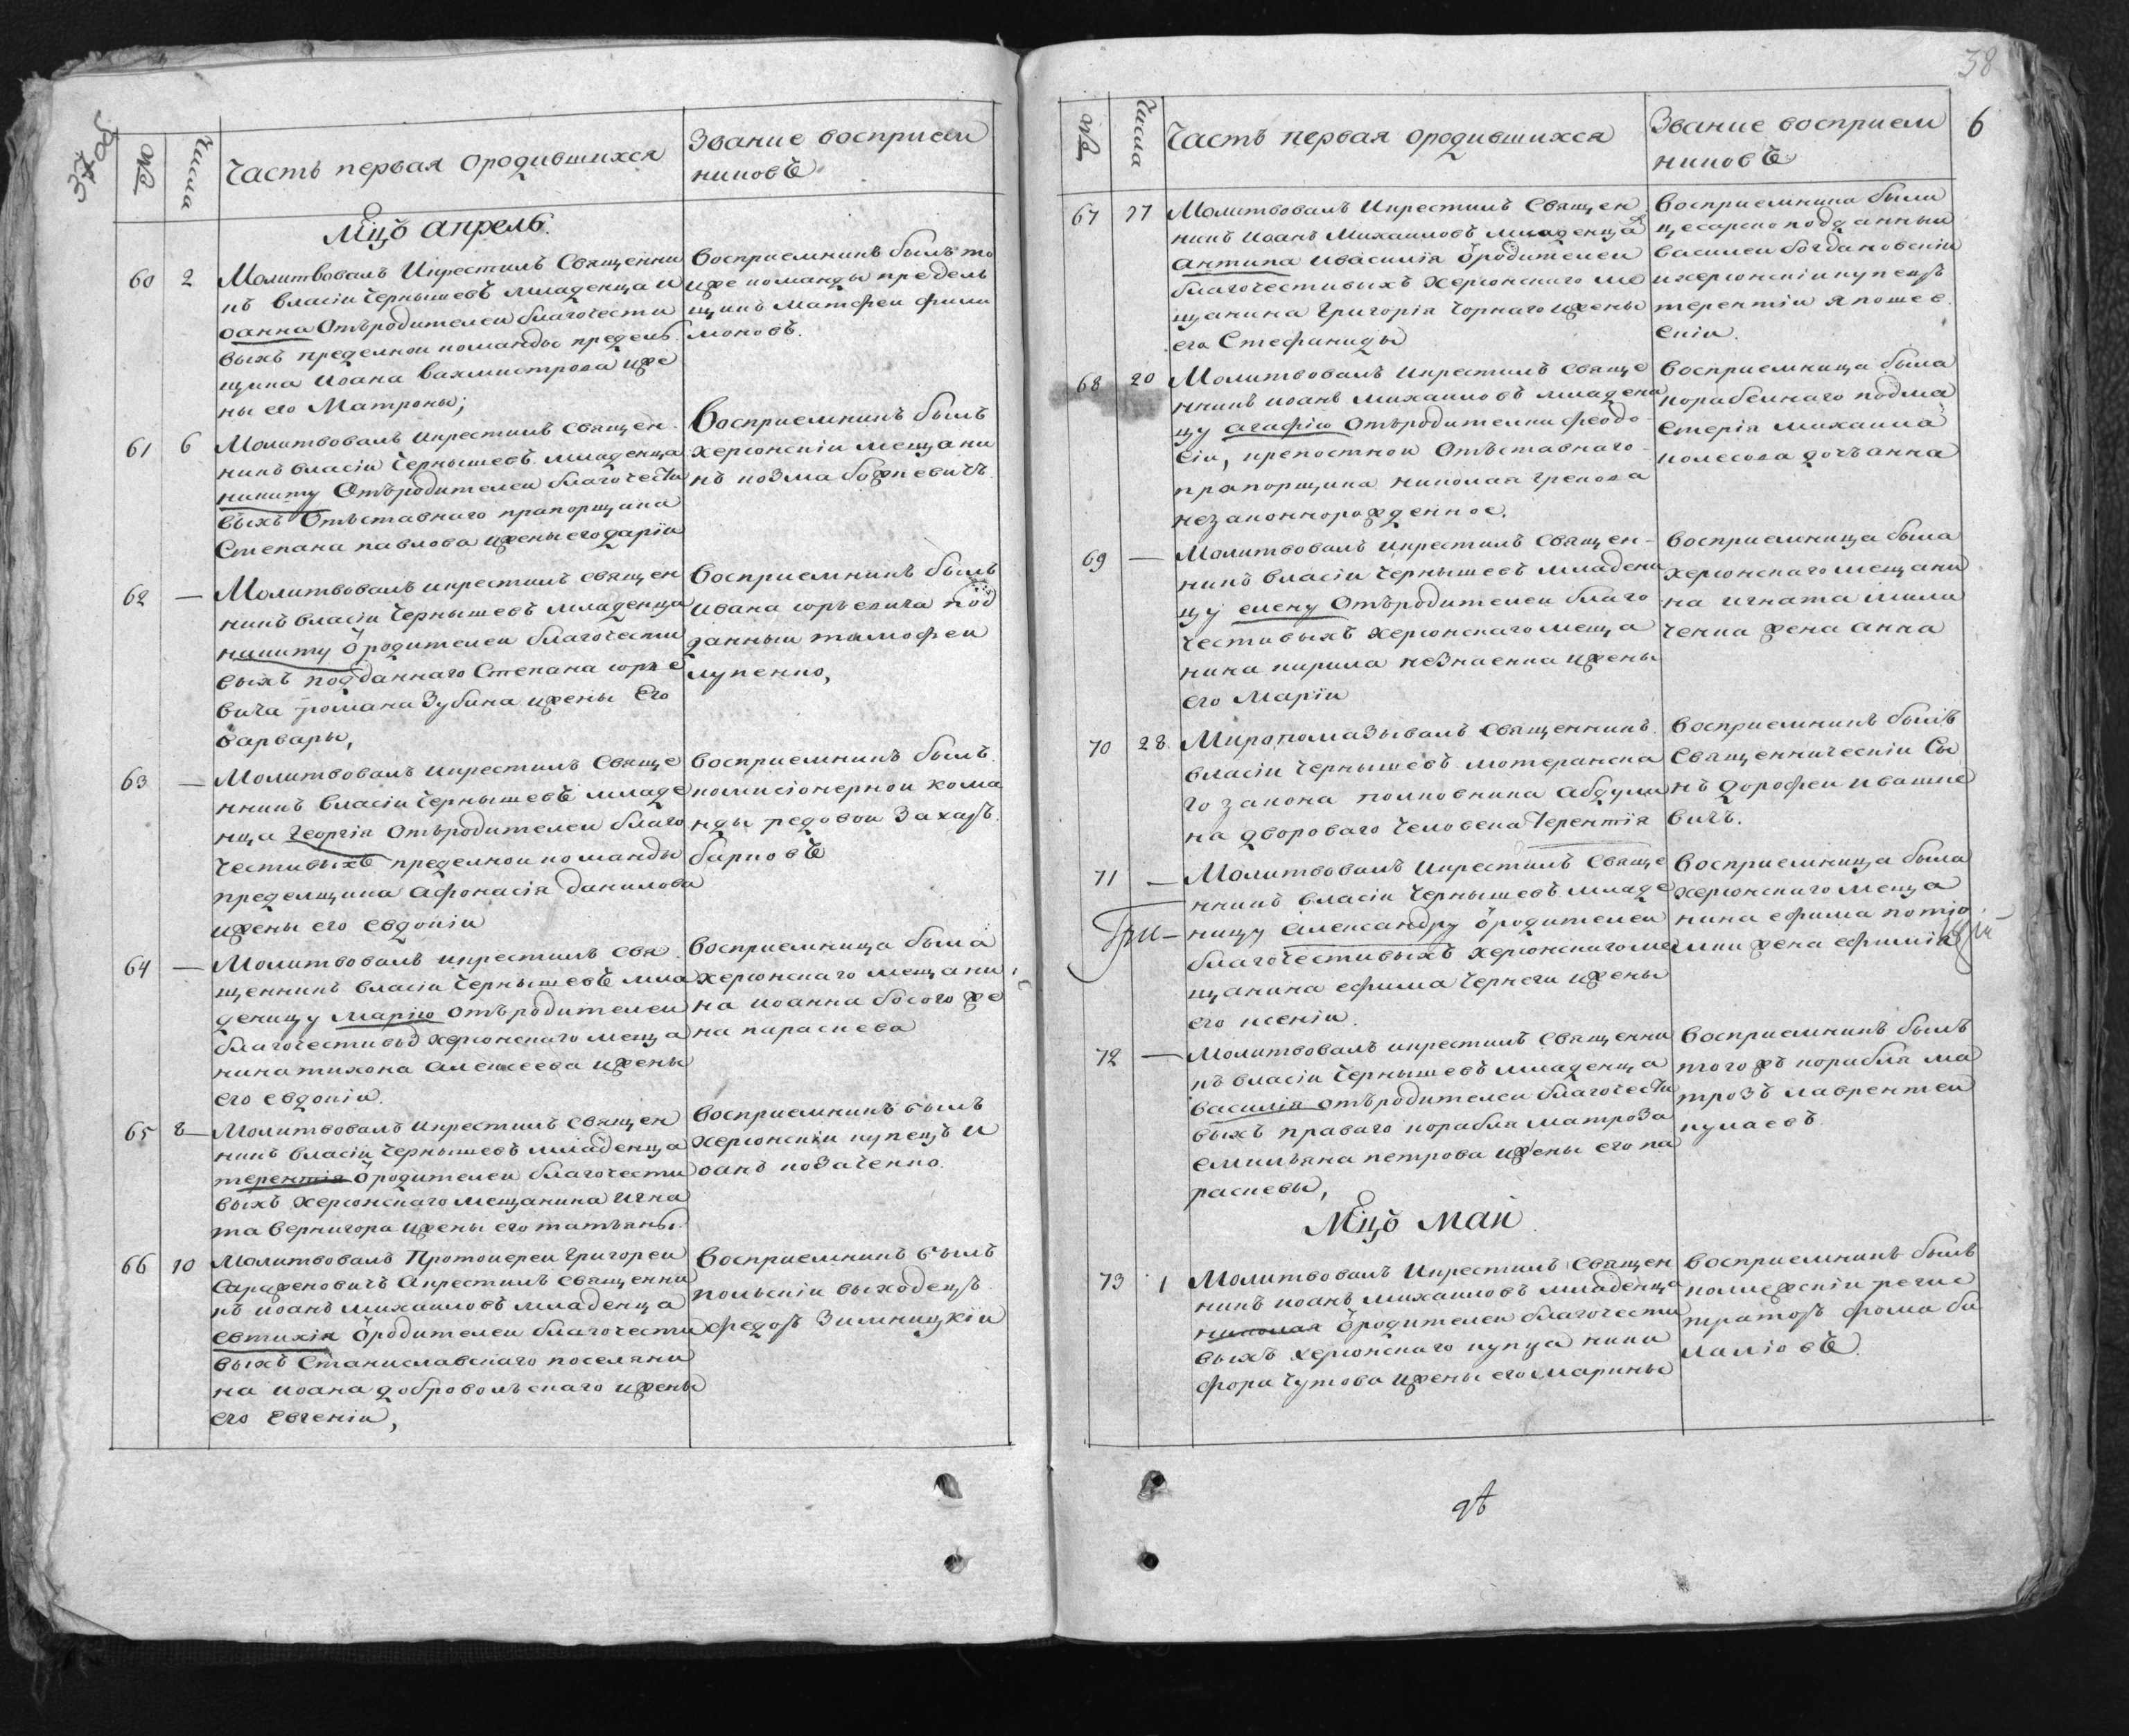 №
Числа
Часть первая ородившихся
Звание восприем
никовъ
Мцъ апрель.
60
2
Молитвовалъ Икрестилъ Священни
къ власіи Чернышевъ младенца И
оанна Отъродителеи благочести
выхъ пределнои команды предель
щика Иоана Вахмистрова иже
ны его Матроны;
Восприемникъ былъ то
иже команды предель
щикъ Матфеи фили
моновъ.
61
6
Молитвовалъ икрестилъ священ
никъ власіи Чернышевъ младенца
никиту Отъродителеи благочести
выхъ Отъставнаго прапорщика
Степана павлова ижены его даріи
Восприемникъ былъ
херсонскіи мещани
нъ козма божкевичъ
62
—
Молитвовалъ икрестилъ священ
никъ власіи Чернышевъ младенца
никиту ѿродителеи благочести
выхъ подданнаго Степана юрье
вича романа Зубина ижены Его
варвары,
Восприемникъ былъ
ивана юрьевича под
данныи тимофеи
лупенко,
63
—
Молитвовалъ икрестилъ Свяще
нникъ власіи Чернышевъ младе
нца георгія Отъродителеи благо
честивыхъ пределнои команды
пределщика афонасія данилова
ижены его евдокіи
восприемникъ былъ
комисіонернои кома
нды редовои Захаръ
барковъ
64
—
Молитвовалъ икрестилъ Свя
щенникъ власіи Чернышевъ мла
деницу марію отъродителеи
благочестивыд херсонскаго меща
нина тихона алексеева ижены
его евдокіи.
Восприемница была
херсонскаго мещани
на иоанна босого же
на параскева
65
8
Молитвовалъ икрестилъ священ
никъ власіи Чернышевъ младенца
терентія ѿродителеи благочести
выхъ херсонскаго мещанина игна
та вернигора ижены его татьаны.
Восприемникъ былъ
херсонскіи купецъ и
оанъ козаченко.
66
10
Молитвовалъ Протоиереи григореи
Сараженовичъ акрестилъ священни
къ иоанъ михаиловъ младенца
евтихія ѿродителеи благочести
выхъ Станиславскаго поселяни
на иоана добровольскаго ижены
его евгеніи,
Восприемникъ былъ
польскіи выходецъ
федоръ Зимницкіи
38
6
№
Числа
Часть первая ородившихся
Звание восприем
никовъ
67
17
Молитвовалъ Икрестилъ Священ
никъ иоанъ Михаиловъ младенца
антипа ивасилія ѿродителеи
благочестивыхъ херсонскаго ме
щанина григорія чорнаго ижены
его Стефаниды
Восприемники были
цесарско подданныи
василеи богдановскіи
ихерсонскіи купецъ
терентіи япошее
скіи.
68
20
Молитвовалъ икрестилъ свяще
нникъ иоанъ михаиловъ младени
цу агафію Отъродителки феодо
сіи, крепостнои Отъставнаго
прапорщика николая грекова
незаконнорожденное.
восприемница была
корабелнаго подма
стерія михаила
колесова дочъ анна
69
—
Молитвовалъ икрестилъ священ-
никъ власіи чернышевъ младени
цу елену Отъродителеи благо
честивыхъ херсонскаго меща
нина кирила незнаенка ижены
его Маріи
восприемница была
херсонскаго мещани
на игната мили
ченка жена анна
70
28
Миропомазывалъ священникъ
власіи чернышевъ лютеранска
го закона полковника абдули
на двороваго человека Терентія
восприемникъ былъ
Священническіи Сы
нъ дорофеи иваше
вичъ.
71
—
Молитвовалъ икрестилъ Свяще
нникъ власіи чернышевъ младе
ницу александру ѿродителеи
благочестивыхъ херсонскаго ме
щанина ефима чернеги ижены
его ксеніи.
восприемница была
херсонскаго меща
нина ефима потіо
мки жена ефимія
72
—
Молитвовалъ икрестилъ Священни
къ власіи чернышевъ младенца
василія отъродителеи благочести
выхъ праваго корабля матроза
емильяна петрова ижены его па
раскевы,
восприемникъ былъ
тогожъ корабля ма
трозъ лаврентеи
кулаевъ
Мцъ маи
73
1
Молитвовалъ Икрестилъ Священ
никъ иоанъ михаиловъ младенца
николая ѿродителеи благочести
выхъ херсонскаго купца ники
фора чутова ижены его марины
восприемникъ былъ
колежскіи регис
траторъ фома би
лаліовъ.